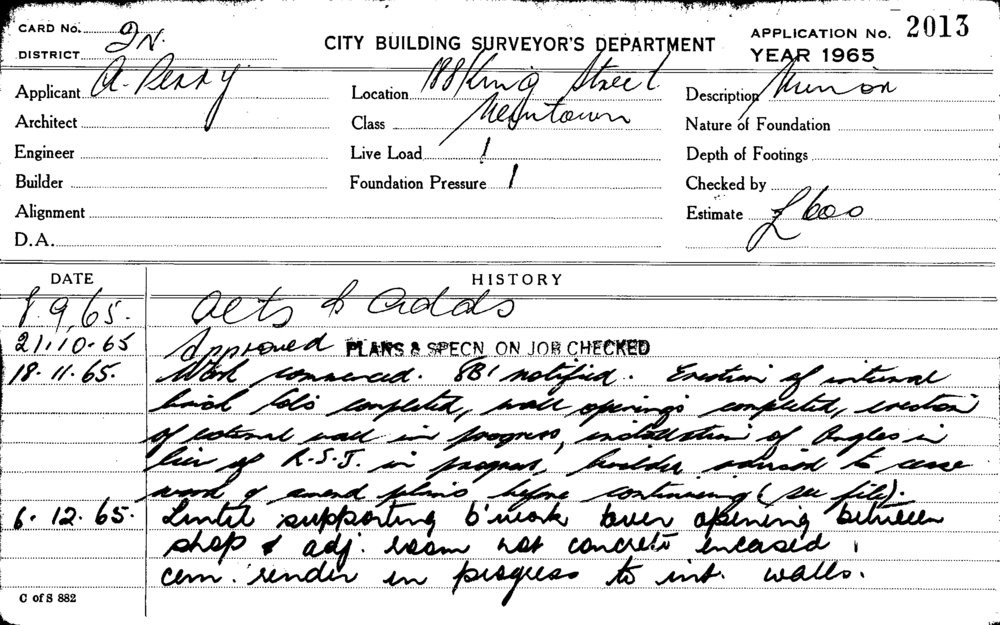 CARD No.
DISTRICT 2N.
CITY BUILDING SURVEYOR'S DEPARTMENT
APPLICATION No. 2013
YEAR 1965
Applicant A. Perry
Location 188 King Street
Description Minion
Architect
Class Newtown
Nature of Foundation
Engineer
Live Load 1
Depth of Footings
Builder
Foundation Pressure 1
Checked by
Alignment
Estimate £600
D.A.
DATE
HISTORY
8.9.65. Alts & Adds
21.10.65 Approved PLANS & SPECN ON JOB CHECKED
18.11.65. Work commenced. SB1 notified. Erection of internal
brick cols completed, wall openings completed, erection
of external wall in progress, installation of Angles in
lieu of R.S.J. in progress, builder advised to cease
work & amend plans before continuing (see file).
6.12.65. Lintel supporting b'work over opening between
shop & adj. room not concrete encased,
cem. render in progress to int. walls.
C of S 882